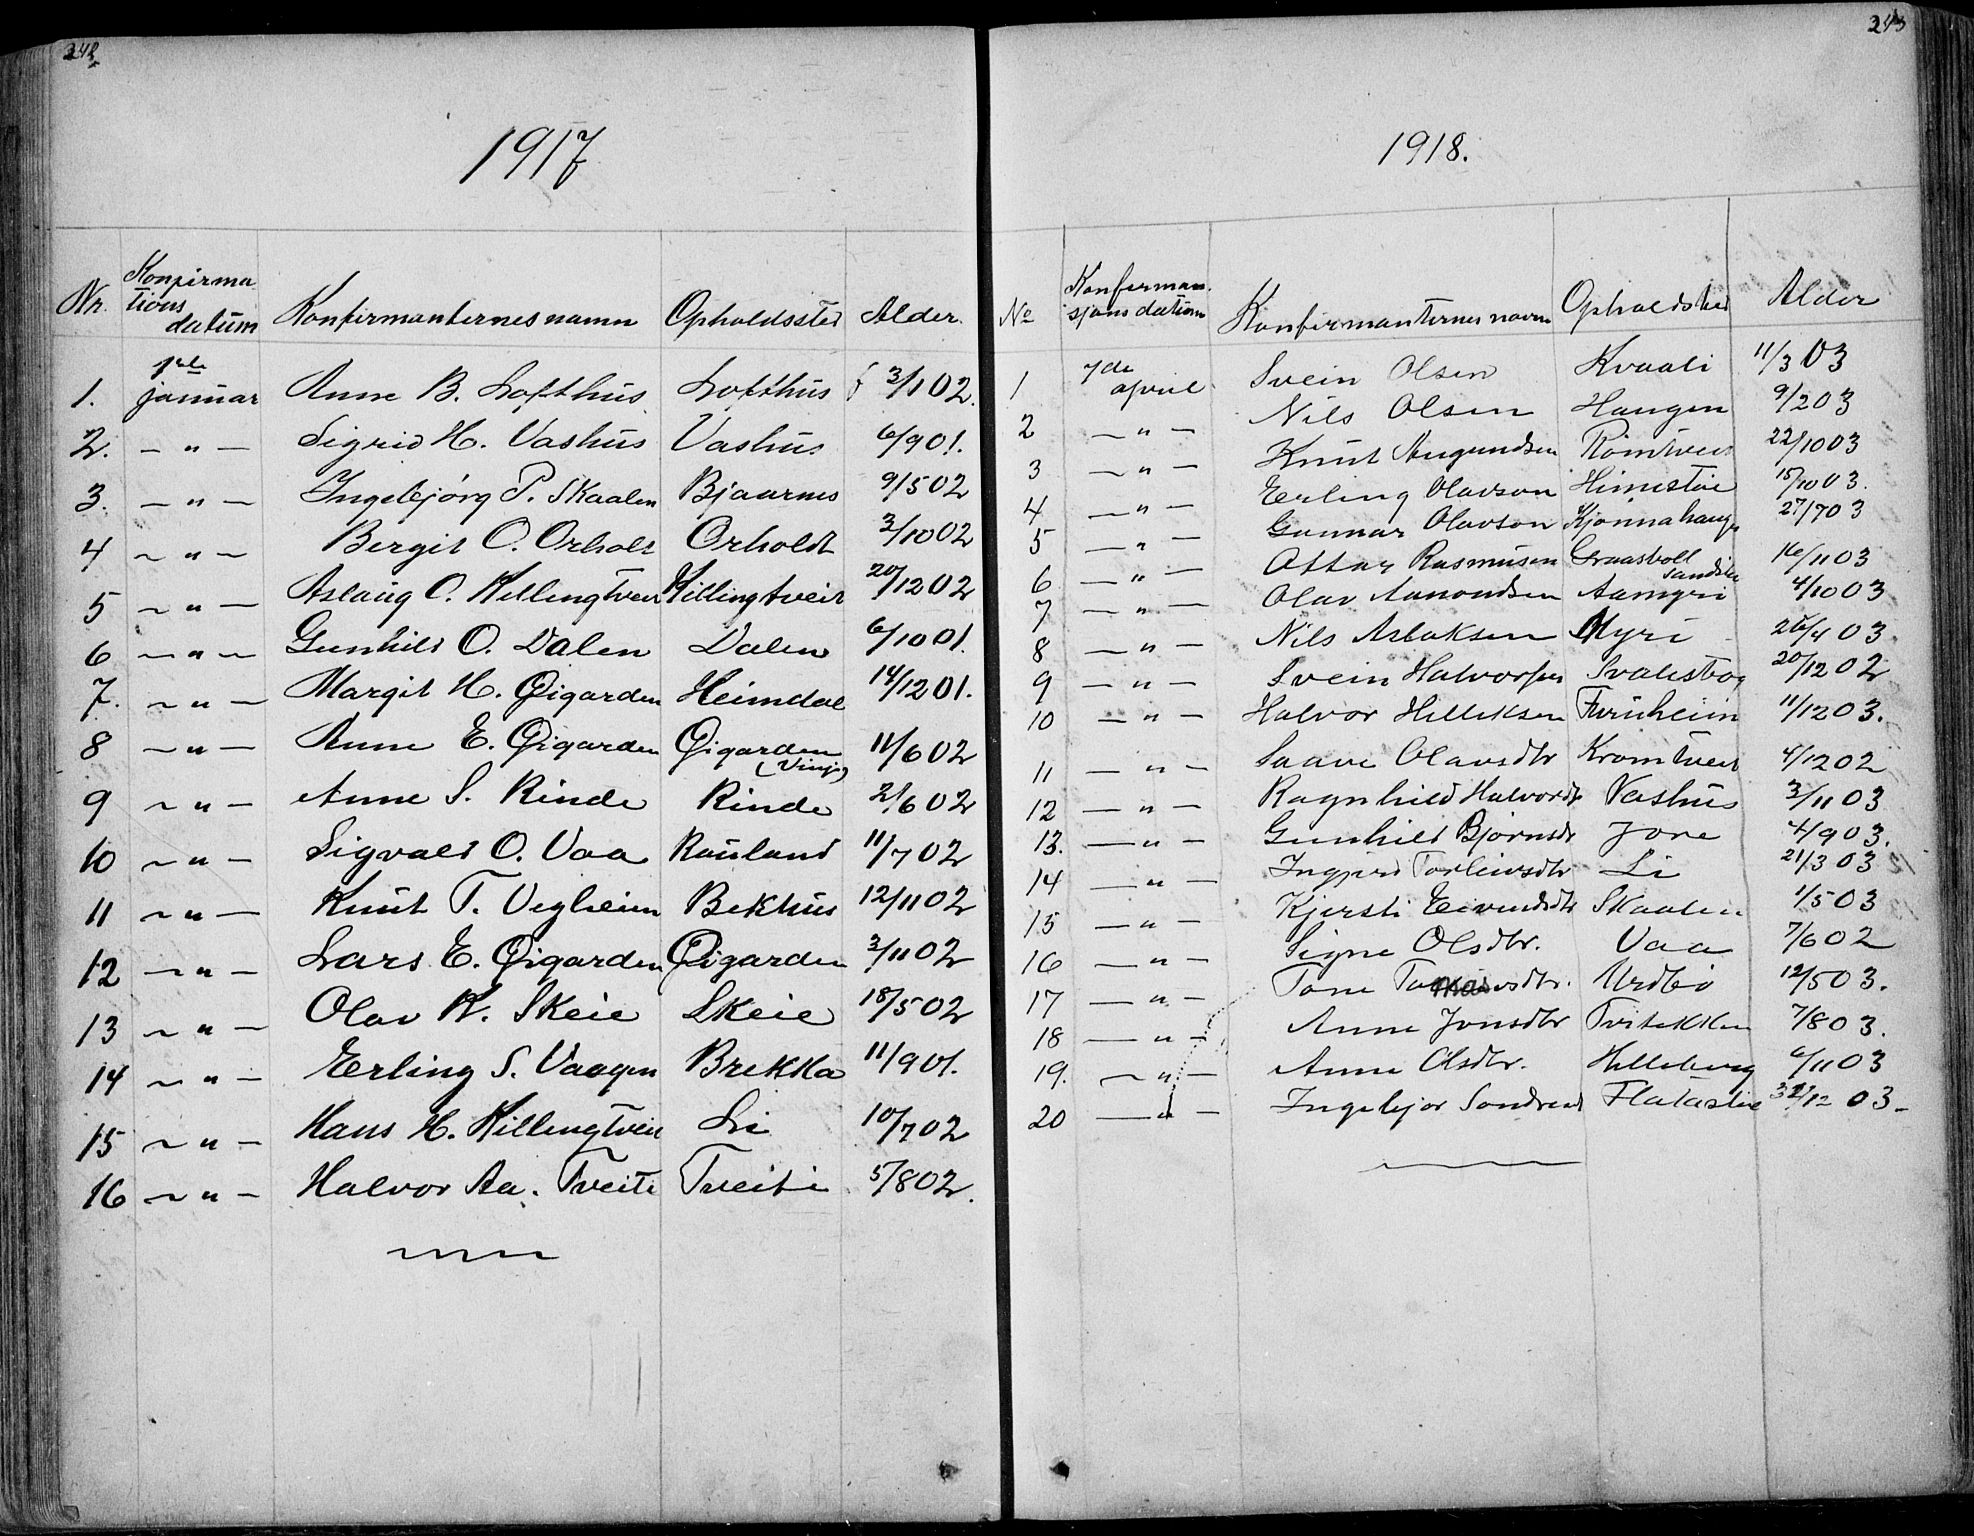 242
1917
Nr. Konfirma tions datum Konfirmanternes namn Opholdssted Alder.
1. 1ste januar Anne B. Lofthus Lofthus f 3/1 02.
2. – " – Sigrid H. Vashus Vashus 6/9 01.
3. – " – Ingebjørg P. Skaalen Bjaarnes 9/5 02
4 – " – Bergit O. Orholt Orholdt 3/10 02
5 – " – Aslaug O. Killingtveit Killingtveit 20/12 02
6 – " – Gunhild O. Dalen Dalen 6/10 01.
7. – " – Margit H. Øigarden Heimdal 14/12 01.
8 – " – Anne E. Øigarden Øigarden (Vinje) 11/6 02
9 – " – Anne S. Rinde Rinde 2/6 02
10 – " – Sigvald O. Vaa Rauland 11/7 02
11 – " – Knut T. Vegheim Bekhus 12/11 02
12 – " – Lars E. Øigarden Øigarden 3/11 02
13 – " – Olav K. Skeie Skeie 18/5 02
14 – " – Erling S. Vaagen Brekka 11/9 01.
15 – " – Hans H. Killingtveit Li 10/7 02
16 – " – Halvor Aa. Tveiti Tveiti 5/8 02.
243
1918.
No Konfirman. sjons datum Konfirmanternes navn Opholdsted Alder
1 7de april Svein Olsen Kvaali 11/3 03
2 – " – Nils Olsen Haugen 9/2 03
3 – " – Knut Augundsen Romtveit 22/10 03
4 – " – Erling Olavson Himestøe 18/10 03.
5 – " – Gunnar Olavson Kjønnahaug 27/7 03
6 – " – Ottar Rasmusen Graasvoll 16/11 03
7 – " – Olav Aamondsen Aamyri 4/10 03
8 – " – Nils Aslaksen Myri 26/4 03
9 – " – Svein Halvorsen Svalestog 20/12 02
10 – " – Halvor Hilleksen Furuheim 11/12 03.
11 – " – Saave Olavsdtr Kromtveit 4/12 02
12 – " – Ragnhild Halvordtr Vashus 3/11 03
13. – " – Gunhild Bjørnsdtr Jore 4/9 03.
14 – " – Ingjerd Torleivsdtr Li 21/3 03
15 – " – Kjersti Eivindsdtr Skaalen 1/5 03
16 – " – Signe Olsdtr. Vaa 7/6 02
17 – " – Tone Urdbø 12/5 03.
18 – " – Anne Jonsdtr Tvitekken 7/8 03.
19. – " – Anne Olsdtr. Hilleberg 6/11 03
20 – " – Ingebjør Sondresd Flatastøe /12 03-